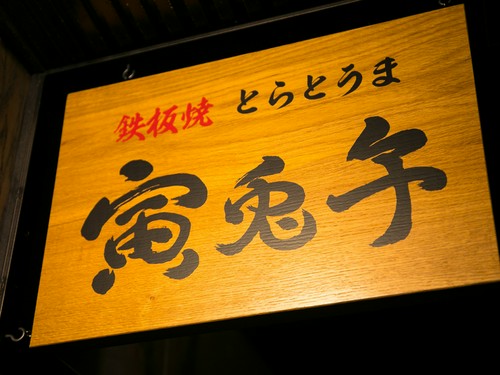 鉄板焼 とらとうま
寅兎午